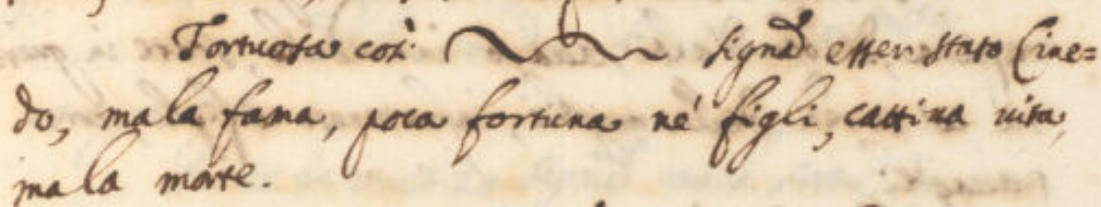 Tortuosa così signa esser stato Cine=
do, mala fama, poca fortuna né figli, cattiua uita,
mala morte.